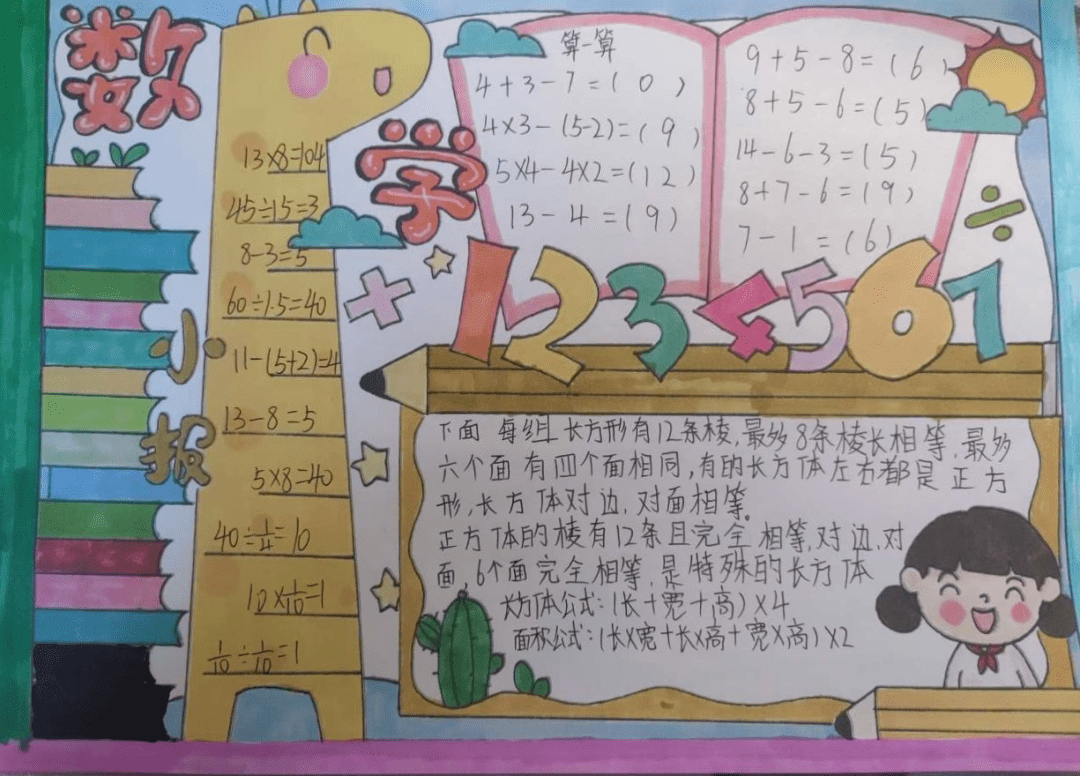 数
学
小
报
13×8=104
45÷15=3
8-3=5
60÷1.5=40
11-(5+2)=4
13-8=5
5×8=40
40÷1/4=10
10×1/10=1
1/10÷1/10=1
算一算
4+3-7=(0)
4×3-(5-2)=(9)
5×4-4×2=(12)
13-4=(9)
9+5-8=(6)
8+5-6=(5)
14-6-3=(5)
8+7-6=(9)
7-1=(6)
1234567
下面每组长方形有12条棱,最多8条棱长相等,最多
六个面有四个面相同,有的长方体左右都是正方
形,长方体对边,对面相等。
正方体的棱有12条且完全相等,对边,对
面,6个面完全相等,是特殊的长方体
长方体公式:(长+宽+高)×4
面积公式:(长×宽+长×高+宽×高)×2